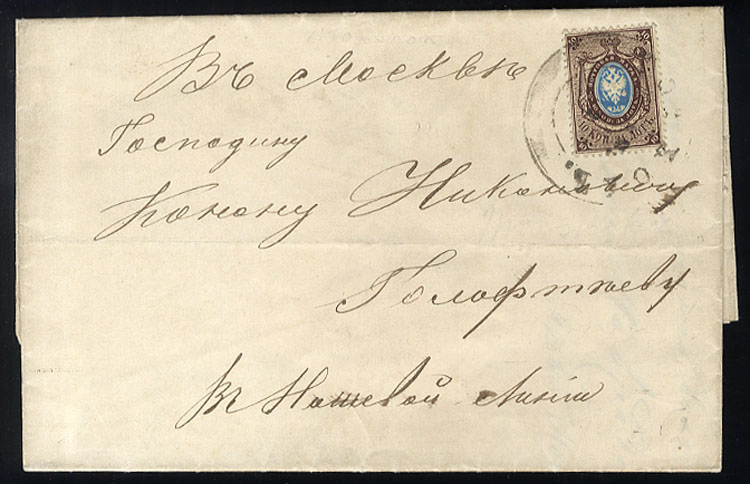 Въ Москвѣ
Господину
Конону Никоновичу
Голофтѣеву
въ Ножевой линіи
10 КОП. ЗА ЛОТЪ